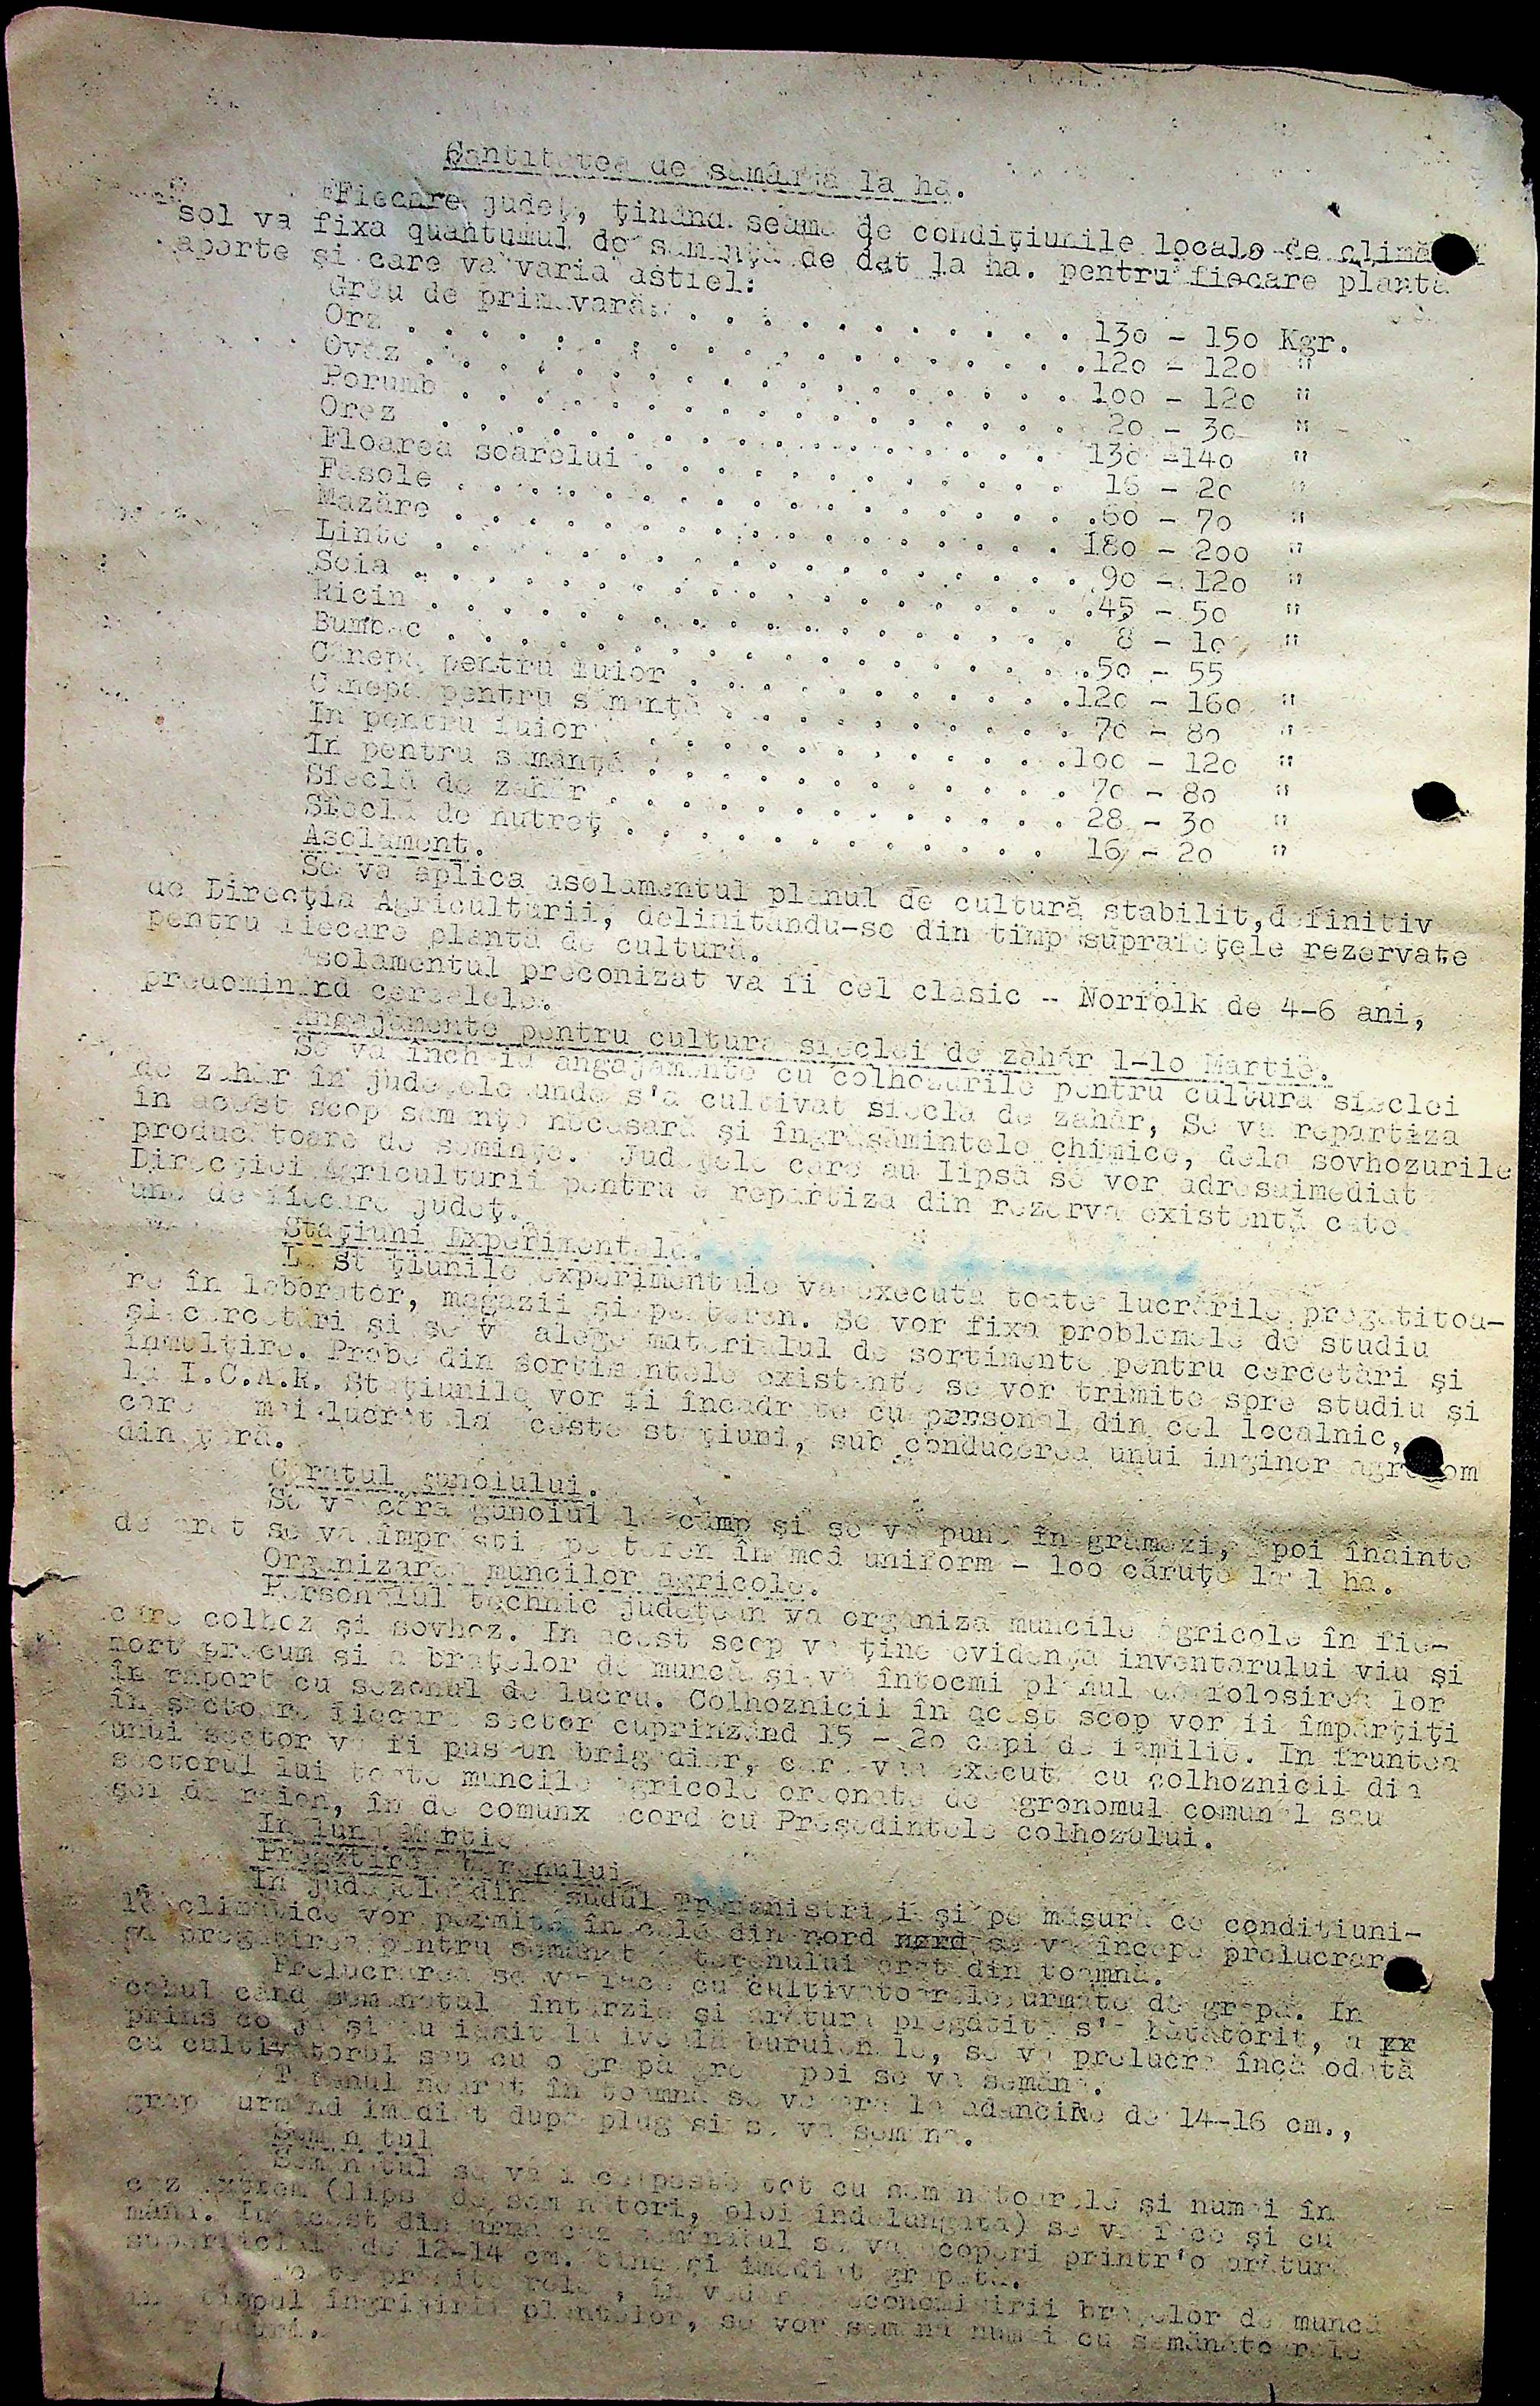 Cantitatea de sămânță la ha.
Fiecare județ, ținând seama de condițiunile locale de climă
sol va fixa quantumul de sămânță de dat la ha. pentru fiecare plantă
aparte și care va varia astfel:
Grâu de primăvară. . . . . . . . . . . . . . . 130 - 150 Kgr.
Orz . . . . . . . . . . . . . . . . . . . .120 - 120 "
Ovăz . . . . . . . . . . . . . . . . . . . 100 - 120 "
Porumb . . . . . . . . . . . . . . . . . . 20 - 30 "
Orez . . . . . . . . . . . . . . . . . . 130 -140 "
Floarea soarelui . . . . . . . . . . . . . 16 - 20 "
Fasole . . . . . . . . . . . . . . . . . .60 - 70 "
Mazăre . . . . . . . . . . . . . . . . . 180 - 200 "
Linte . . . . . . . . . . . . . . . . . . 90 - 120 "
Soia . . . . . . . . . . . . . . . . . . .45 - 50 "
Ricin . . . . . . . . . . . . . . . . . . 8 - 10 "
Bumbac . . . . . . . . . . . . . . . . . .50 - 55
Cânepă pentru fuior . . . . . . . . . . . .120 - 160 "
Cânepă pentru sămânță . . . . . . . . . . 70 - 80 "
In pentru fuior . . . . . . . . . . . . .100 - 120 "
In pentru sămânță . . . . . . . . . . . . 70 - 80 "
Sfeclă de zahăr . . . . . . . . . . . . . 28 - 30 "
Sfeclă de nutreț . . . . . . . . . . . . . 16 - 20 "
Asolament.
Se va aplica asolamentul planul de cultură stabilit,definitiv
de Direcția Agriculturii, delimitându-se din timp suprafețele rezervate
pentru fiecare plantă de cultură.
Asolamentul preconizat va fi cel clasic - Norfolk de 4-6 ani,
predominând cerealele.
Angajamente pentru cultura sfeclei de zahăr 1-10 Martie.
Se va încheia angajamente cu colhozurile pentru cultura sfeclei
de zahăr în județele unde s'a cultivat sfecla de zahăr, Se va repartiza
în acest scop sămânța necesară și îngrășămintele chimice, dela sovhozurile
producătoare de semințe. Județele care au lipsă se vor adresaimediat
Direcției Agriculturii pentru a repartiza din rezerva existentă câte
una de fiecare județ.
Stațiuni Experimentale.
La stațiunile experimentale va executa toate lucrările pregătitoa-
re în laborator, magazii și pe teren. Se vor fixa problemele de studiu
și cercetări și se va alege materialul de sortimente pentru cercetări și
înmulțire. Probe din sortimentele existente se vor trimite spre studiu și
la I.C.A.R. Stațiunile vor fi încadrate cu personal din cel localnic,
care mai lucrat la aceste stațiuni, sub conducerea unui inginer agronom
din țară.
Căratul gunoiului.
Se va căra gunoiul la câmp și se va pune în grămezi, apoi înainte
de arat se va împrăștia pe teren în mod uniform - 100 căruțe la 1 ha.
Organizarea muncilor agricole.
Personalul technic județean va organiza muncile agricole în fie-
care colhoz și sovhoz. In acest scop va ține evidența inventarului viu și
mort precum și a brațelor de muncă și va întocmi planul de folosirea lor
în raport cu sezonul de lucru. Colhoznicii în acest scop vor fi împărțiți
în sectoare fiecare sector cuprinzând 15 - 20 capi de familie. In fruntea
unui sector va fi pus un brigadier, care va executa cu colhoznicii din
sectorul lui toate muncile agricole ordonate de agronomul comunal sau
șef de raion, în de comunx acord cu Președintele colhozului.
In luna Martie
Pregătirea terenului
In județele din sudul Transnistriei și pe măsură ce condițiuni-
le climatice vor permite în cele din nord nord se va începe prelucrar
și pregătirea pentru semănat a terenului arat din toamnă.
Prelucrarea se va face cu cultivatoarele urmate de grapă. In
cazul când semănatul întârzie și arătura pregătită s'a bătătorit, a xx
prins coajă și au ieșit la iveală buruienile, se va prelucra încă odată
cu cultivatorul sau cu o grapă grea apoi se va semăna.
Terenul nearat în toamnă se va ara la adâncime de 14-16 cm.,
grapa urmând imediat după plug și se va semăna.
Semănatul
Semănatul se va face peste tot cu semănătoarele și numai în
caz extrem (lipsă de semănători, ploi îndelungata) se va face și cu
mâna. In acest din urmă caz semănatul se va acoperi printr'o arătură
superficială de 12-14 cm. bine și imediat grăpată.
Toate prășitoarele, în vederea economisirii brațelor de muncă
în timpul îngrijirii plantelor, se vor semăna numai cu semănătoarele